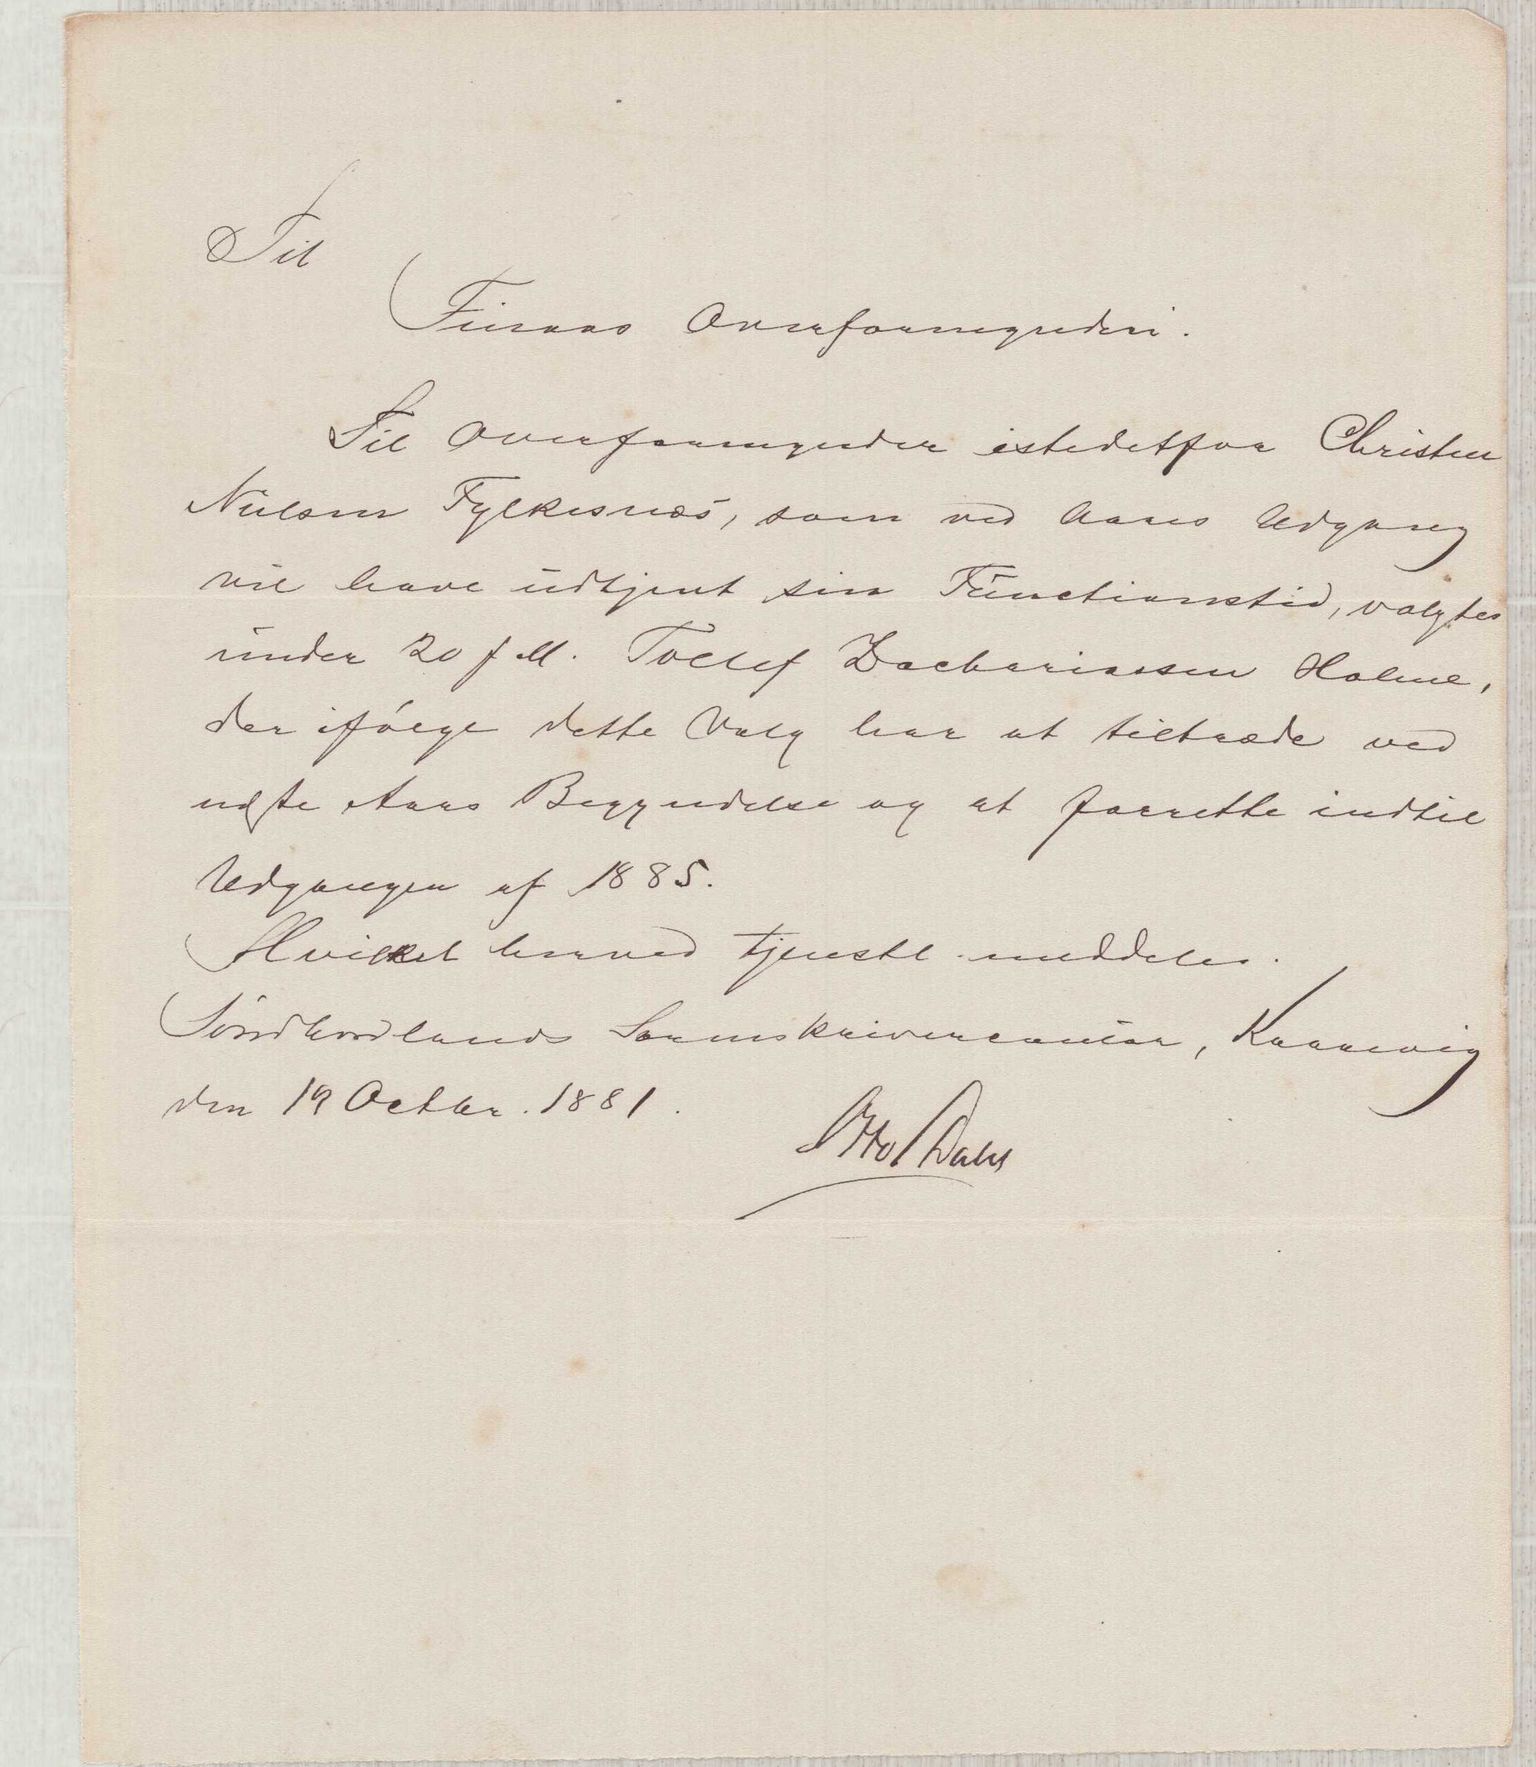 Til
Finaas Overformynderi.
Til Overformynder istedetfor Christen
Nielsen Fylkesnæs, som ved Aarets Udgang
vil have udtjent sin Functionstid, valgtes
under 20 f.M. Tollef Zachariassen Holme,
der ifølge dette Valg har at tiltræde ved
næste Aars Begyndelse og at forrette indtil
Udgangen af 1885.
Hvilket herved tjenstl. meddeles.
Søndhordlands Sorenskrivercontor, Kaarevig
den 19 Octbr. 1881.
Otto Dahl